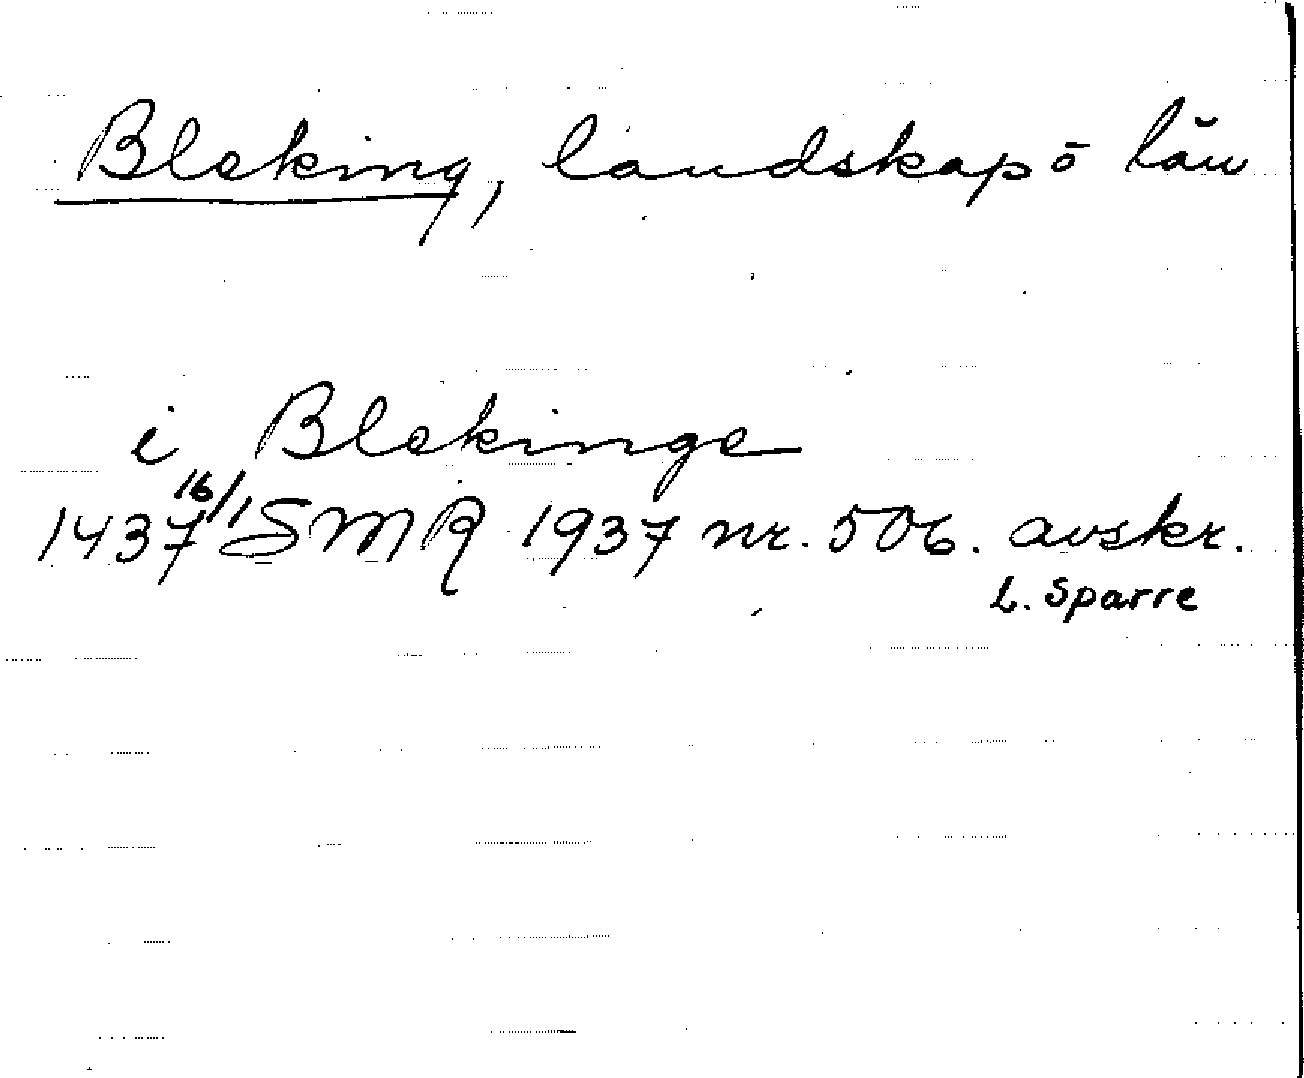 Bleking, landskap o län
i Blekinge
1437 16/1 SMR 1937 nr. 506. avskr.
L. Sparre